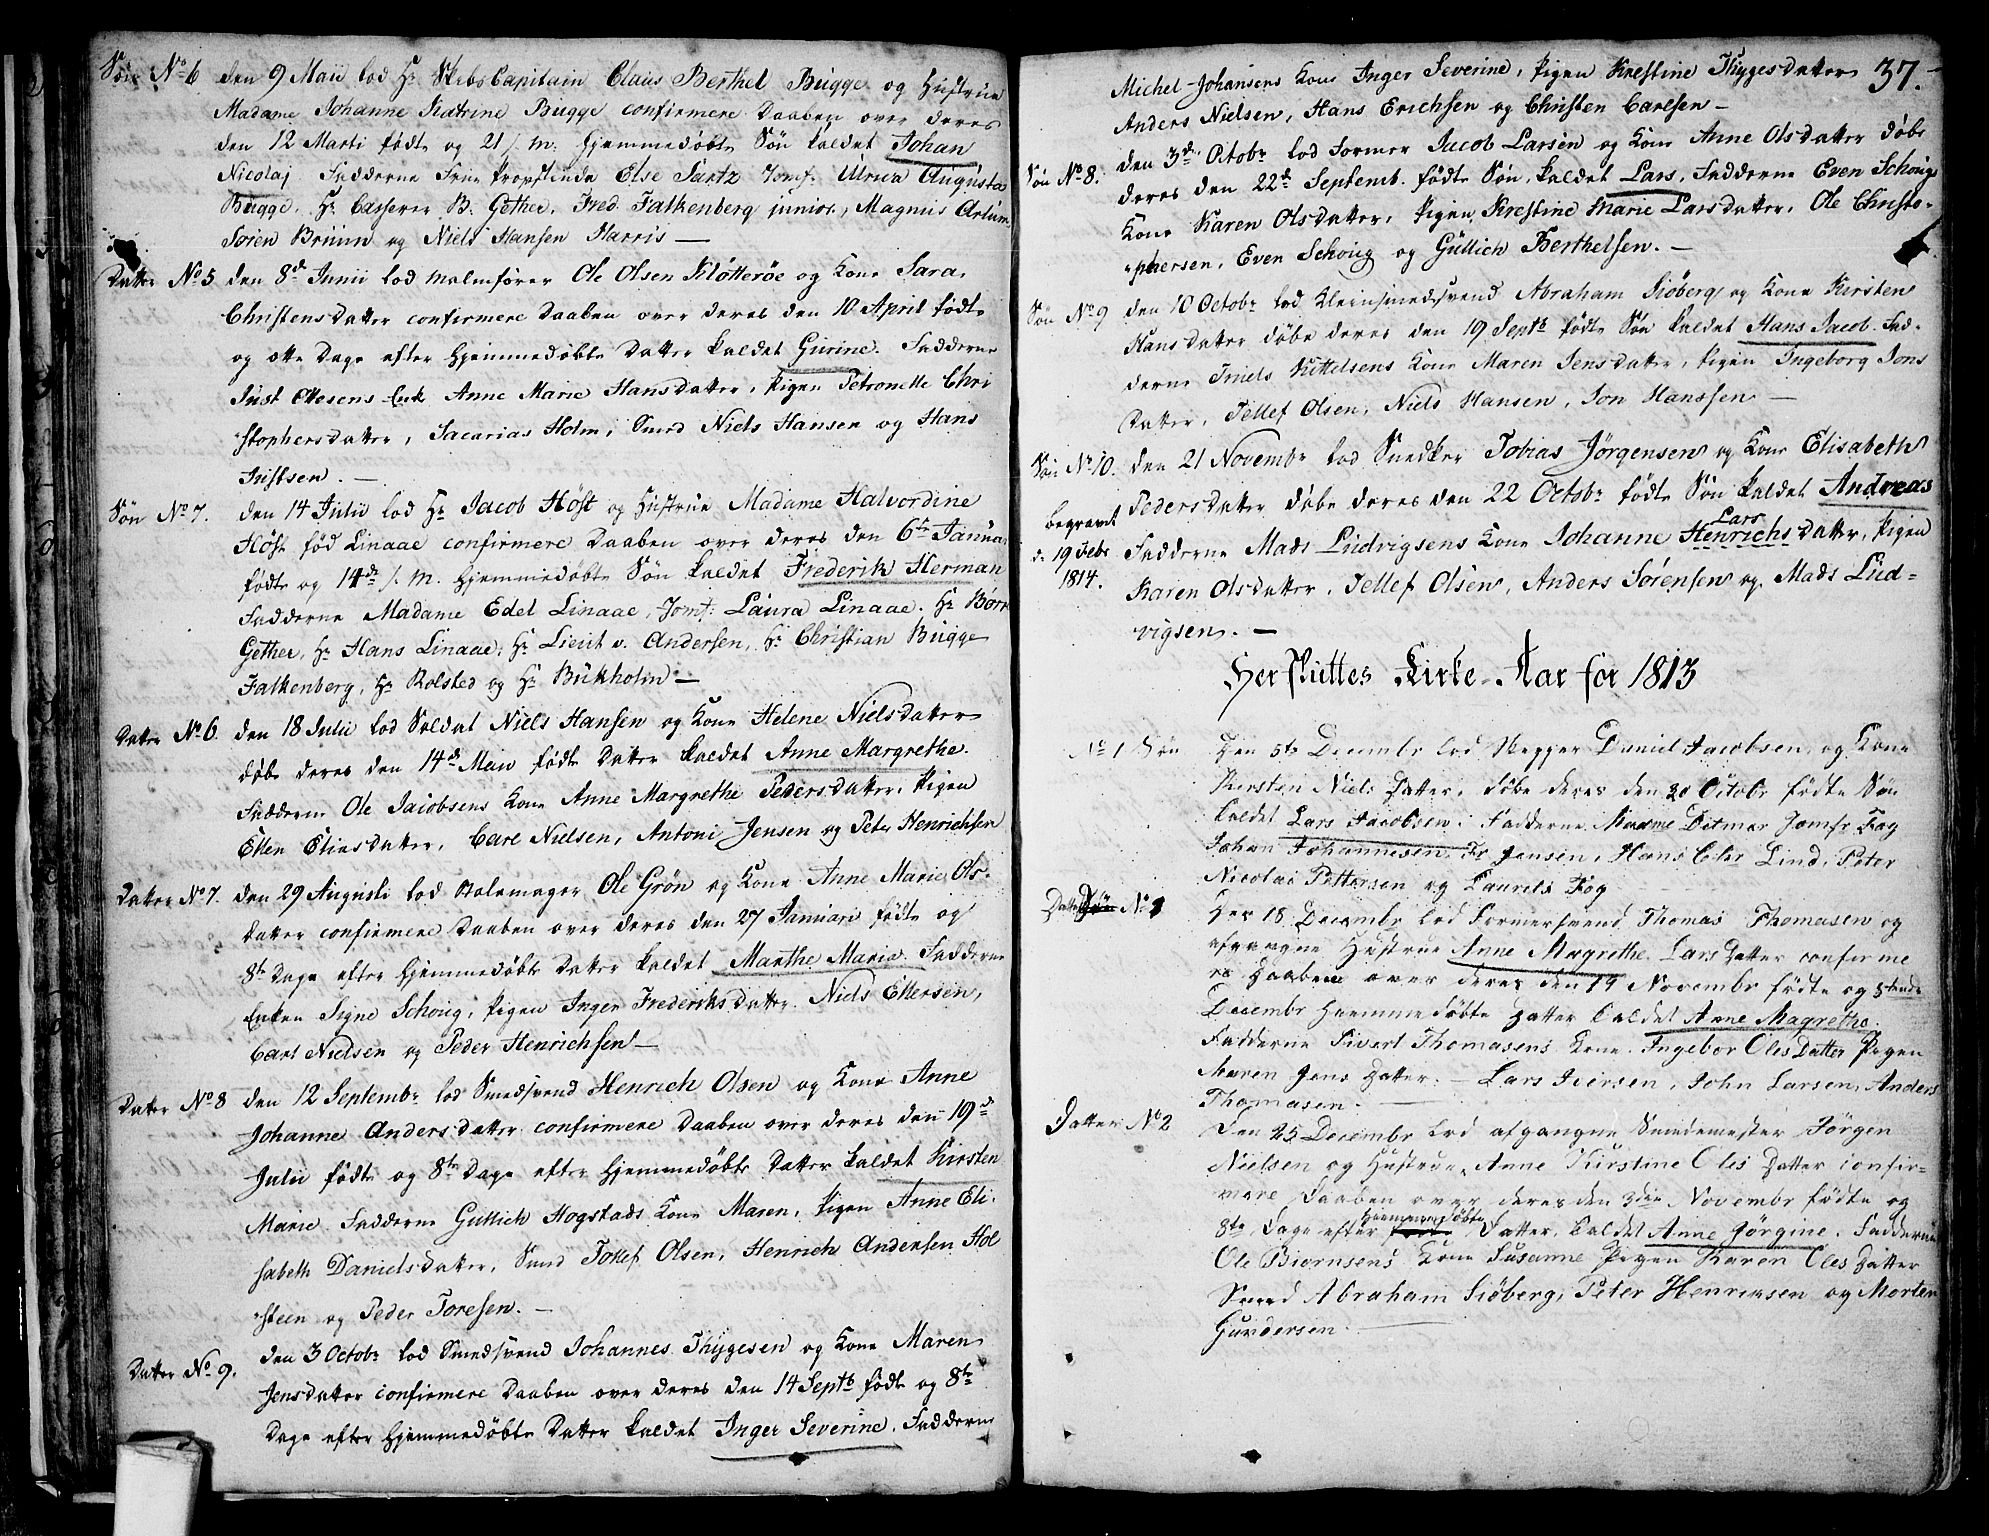 Søn No 6 den 9 Maii lod Hr Skibs Capitain Claus Berthel Bugge og Hustrue
Madame Johanne Katrine Bugge confirmere Daaben over deres
den 12 Marti født og 21 s. m. hjemmedøbte Søn kaldet Johan
Nicolaj. Fadderne Frue Propstinde Else Jomf. Ulrica Augusta
Bugge, Hr Casserer B. Gether, Fred. Falkenberg junior, Magnus
Søren Bruun og Niels Hansen Harris —
Datter No 5 den 8de Junii lod Malmfører Ole Olsen Kløtterøe og Kone Sara
Christensdatter confirmere Daaben over deres den 10 April fødte
og otte Dage efter hjemmedøbte Datter kaldet Gurine. Fadderne
Just Ellesens Enke Anne Marie Hansdatter, Pigen Petronelle Chri
stophersdatter, Sacarias Holm, Smed Niels Hansen og Hans
Justsen. —
Søn No 7. den 14 Julii lod Hr Jacob Høst og Hustrue Madame Halvordine
Høst fød Linaae confirmere Daaben over deres den 6te Januar
født og 14de s. m. hjemmedøbte Søn kaldet Frederik Herman
Fadderne Madame Edel Linaae, Jomf: Laura Linaae. Hr Børre
Gether, Hr Hans Linaae, Hr Lieut v. Andersen, Hr Christian Bugge
Falkenberg, Hr Rolsted og Hr Bukholm —
Datter No 6. den 18 Julii lod Soldat Niels Hansen og Kone Helene Nielsdatter
døbe deres den 14de Maii fødte Datter kaldet Anne Margrethe.
Fadderne Ole Jacobsens Kone Anne Margrethe Pedersdatter, Pigen
Ellen Eliasdatter, Carl Nielsen, Antoni Jensen og Peter Henrichsen
Datter No 7. den 29 Augusti lod Ole Grøn og Kone Anne Marie Ols-
datter confirmere Daaben over deres den 27 Januari fødte og
8te Dage efter hjemmedøbte Datter kaldet Marthe Maria. Fadderne
Enken Signe Schoug, Pigen Inger Frederiksdatter. Niels Ellersen,
Carl Nielsen og Peder Henrichsen —
Datter No 8 den 12 Septembr lod Smedsvend Henrich Olsen og Kone Anne
Johanne Andersdatter confirmere Daaben over deres den 19de
Julii født og 8te Dage efter hjemmedøbte Datter kaldet Kirsten
Marie. Fadderne Gullich Hogstads Kone Maren, Pigen Anne Eli-
sabeth Danielsdatter, Smed Tollef Olsen, Henrich Andersen Hol
steen og Peder Toresen. —
Datter No 9. den 3 Octobr lod Smedsvend Johannes Thygesen og Kone Maren
Jensdatter confirmere Daaben over deres den 14 Septb født og 8te
Dage efter hjemmedøbte Datter kaldet Inger Severine, Fadderne
37.
Michel Johansens Kone Inger Severine, Pigen Krestine Thygesdatter
Anders Nielsen, Hans Erichsen og Christen Carlsen —
Søn No 8. den 3die Octobr lod Former Jacob Larsen og Kone Anne Olsdatter døbe
deres den 22de Septemb. fødte Søn, kaldet Lars, Fadderne Even Schougs
Kone Karen Olsdatter, Pigen Krestine Marie Larsdatter, Ole Christo-
phersen, Even Schoug og Gullich Berthelsen. —
Søn No 9 den 10 Octobr lod Kleinsmedsvend Abraham Siøberg og Kone Kirsten
Hansdatter døbe deres den 19 Septb fødte Søn kaldet Hans Jacob. Fad-
derne Kittelsens Kone Maren Jensdatter, Pigen Ingeborg Jons
datter, Tellef Olsen, Niels Hansen, Jon Hanssen —
Søn No 10. den 21 Novembr lod Snedker Tobias Jørgensen og Kone Elisabeth
Pedersdatter døbe deres den 22 Octobr fødte Søn kaldet Andreas
begravet
d. 19 Febr
1814.
Fadderne Mads Ludvigsens Kone Johanne Henrichs Lars datter, Pigen
Karen Olsdatter, Tellef Olsen, Anders Sørensen og Mads Lud-
vigsen. —
Herskuttes Kirke-Aar for 1813
No 1 Søn Den 5te Decembr lod Daniel Jacobsen og Kone
Kersten Niels Datter, døbe deres den 20 Octobr fødte Søn
kaldet Lars Jacobsen, Fadderne Madme Ditmar Jomfr Fog
Johan Johannesen, Fr Jensen, Hans Lind, Peter
Nicolai Pettersen og Laurels Fog
Datter No 1 Den 18 Decembr lod Formersvend Thomas Thomasen og
afgangne Hustrue Anne Magrethe Lars Datter confirme
re Daaben over deres den 19 Novembr fødte og 5tende
Decembr hiemmedøbte Datter kaldet Anne Magrethe.
Fadderne Sivert Thomasens Kone. Ingebor Oles Datter Pigen
Maren Jens Datter. — Lars Iversen, John Larsen, Anders
Thomasen. —
Datter No 2 Den 25 Decembr lod afgangne Smedemester Jørgen
Nielsen og Hustrue Anne Kirstine Oles Datter confir-
mere Daaben over deres den 3die Novembr fødte og
8te Dage efter hiemmedøbte Datter, kaldet Anne Jørgine. Fadderne
Ole Biørnsens Kone Susanne Pigen Karen Oles Datter
Smed Abraham Siøberg, Peter Henriksen og Morten
Gundersen. —